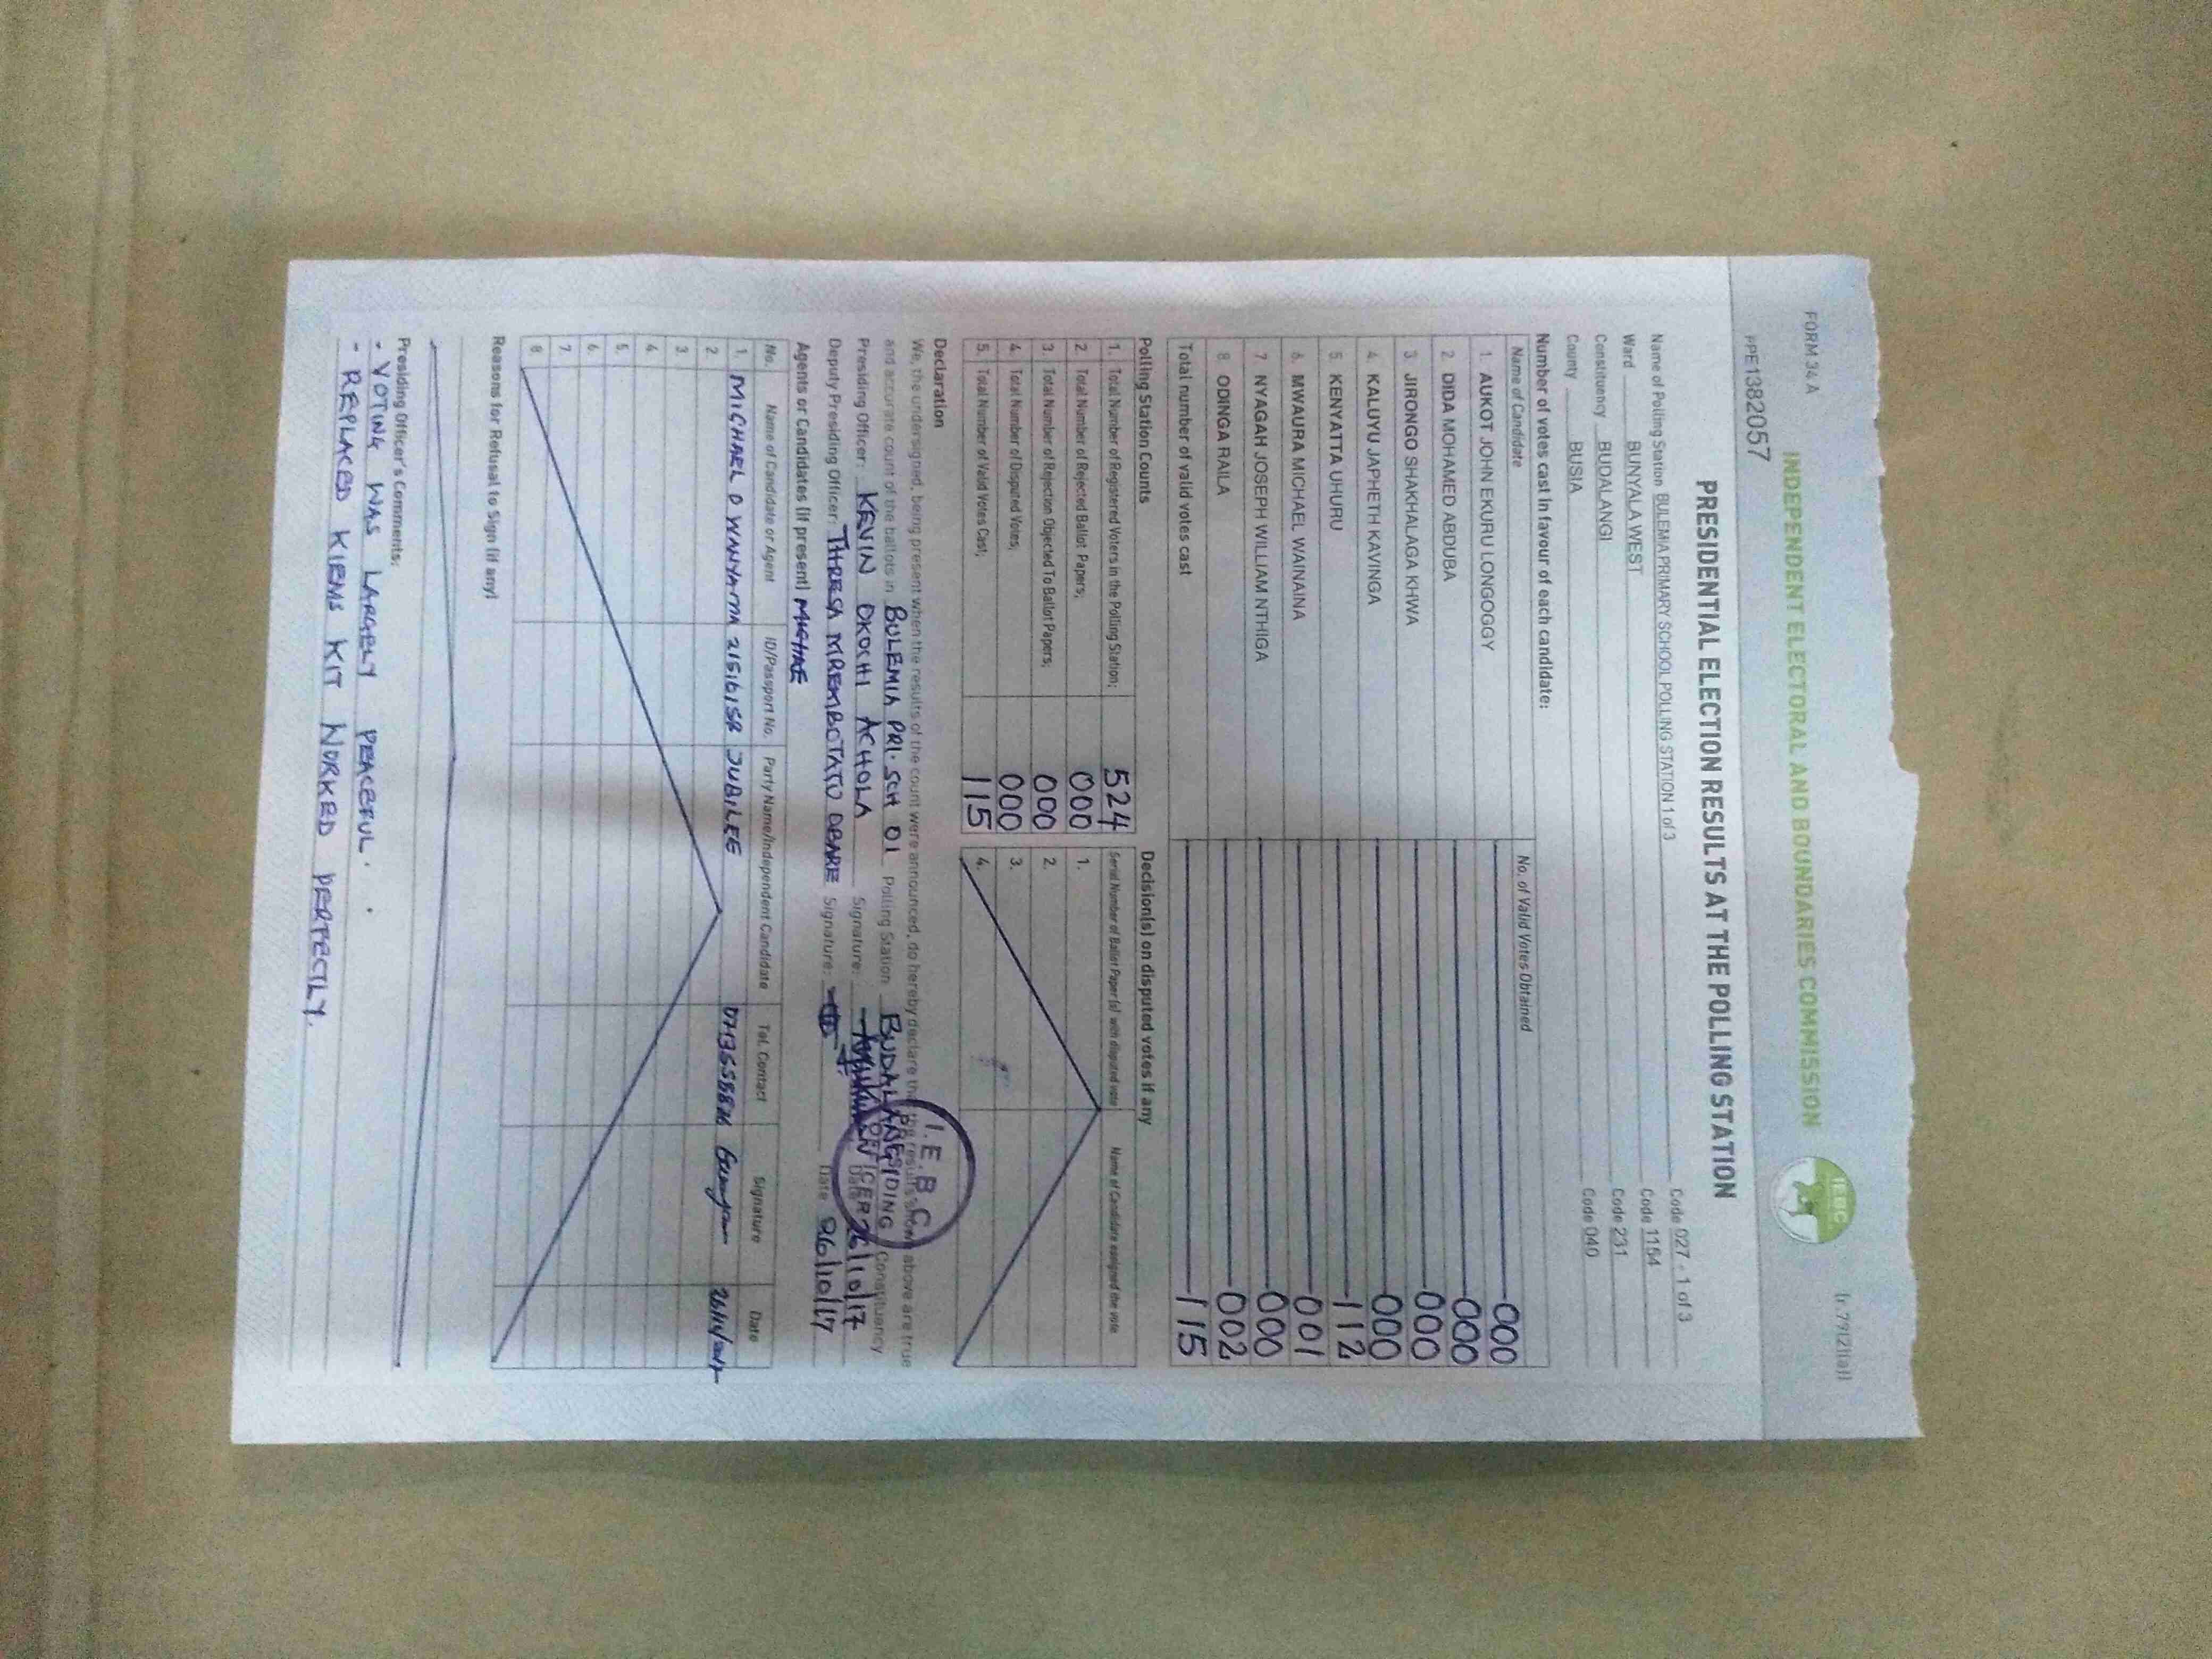 FORM 34 A
(r.79(2)(a))
INDEPENDENT ELECTORAL AND BOUNDARIES COMMISSION
IEBC
PPE1382057
PRESIDENTIAL ELECTION RESULTS AT THE POLLING STATION
Name of Polling Station BULEMIA PRIMARY SCHOOL POLLING STATION 1 of 3 Code 027 - 1 of 3
Ward BUNYALA WEST Code 1154
Constituency BUDALANGI Code 231
County BUSIA Code 040
Number of votes cast in favour of each candidate:
Name of Candidate No. of Valid Votes Obtained
1. AUKOT JOHN EKURU LONGOGGY 000
2. DIDA MOHAMED ABDUBA 000
3. JIRONGO SHAKHALAGA KHWA 000
4. KALUYU JAPHETH KAVINGA 000
5. KENYATTA UHURU 112
6. MWAURA MICHAEL WAINAINA 001
7. NYAGAH JOSEPH WILLIAM NTHIGA 000
8. ODINGA RAILA 002
Total number of valid votes cast 115
Polling Station Counts
1. Total Number of Registered Voters in the Polling Station; 524
2. Total Number of Rejected Ballot Papers; 000
3. Total Number of Rejection Objected To Ballot Papers; 000
4. Total Number of Disputed Votes; 000
5. Total Number of Valid Votes Cast; 115
Decision(s) on disputed votes if any
Serial Number of Ballot Paper (s) with disputed vote Name of Candidate assigned the vote
1.
2.
3.
4.
Declaration
We, the undersigned, being present when the results of the count were announced, do hereby declare that the results shown above are true
and accurate count of the ballots in BULEMIA PRI. SCH 01 Polling Station BUDALANGI Constituency
Presiding Officer: KEVIN OKOCHI ACHOLA Signature: Date 26/10/17
Deputy Presiding Officer: Signature: Date 26/10/17
I.E.B.C
PRESIDING
OFFICER
Agents or Candidates (if present)
No. Name of Candidate or Agent ID/Passport No. Party Name/Independent Candidate Tel. Contact Signature Date
1. MICHAEL O WANYAMA JUBILEE
2.
3.
4.
5.
6.
7.
8.
Reasons for Refusal to Sign (if any)
Presiding Officer's Comments:
- VOTING WAS LARGELY PEACEFUL.
- REPLACED KIEMS KIT WORKED PERFECTLY.